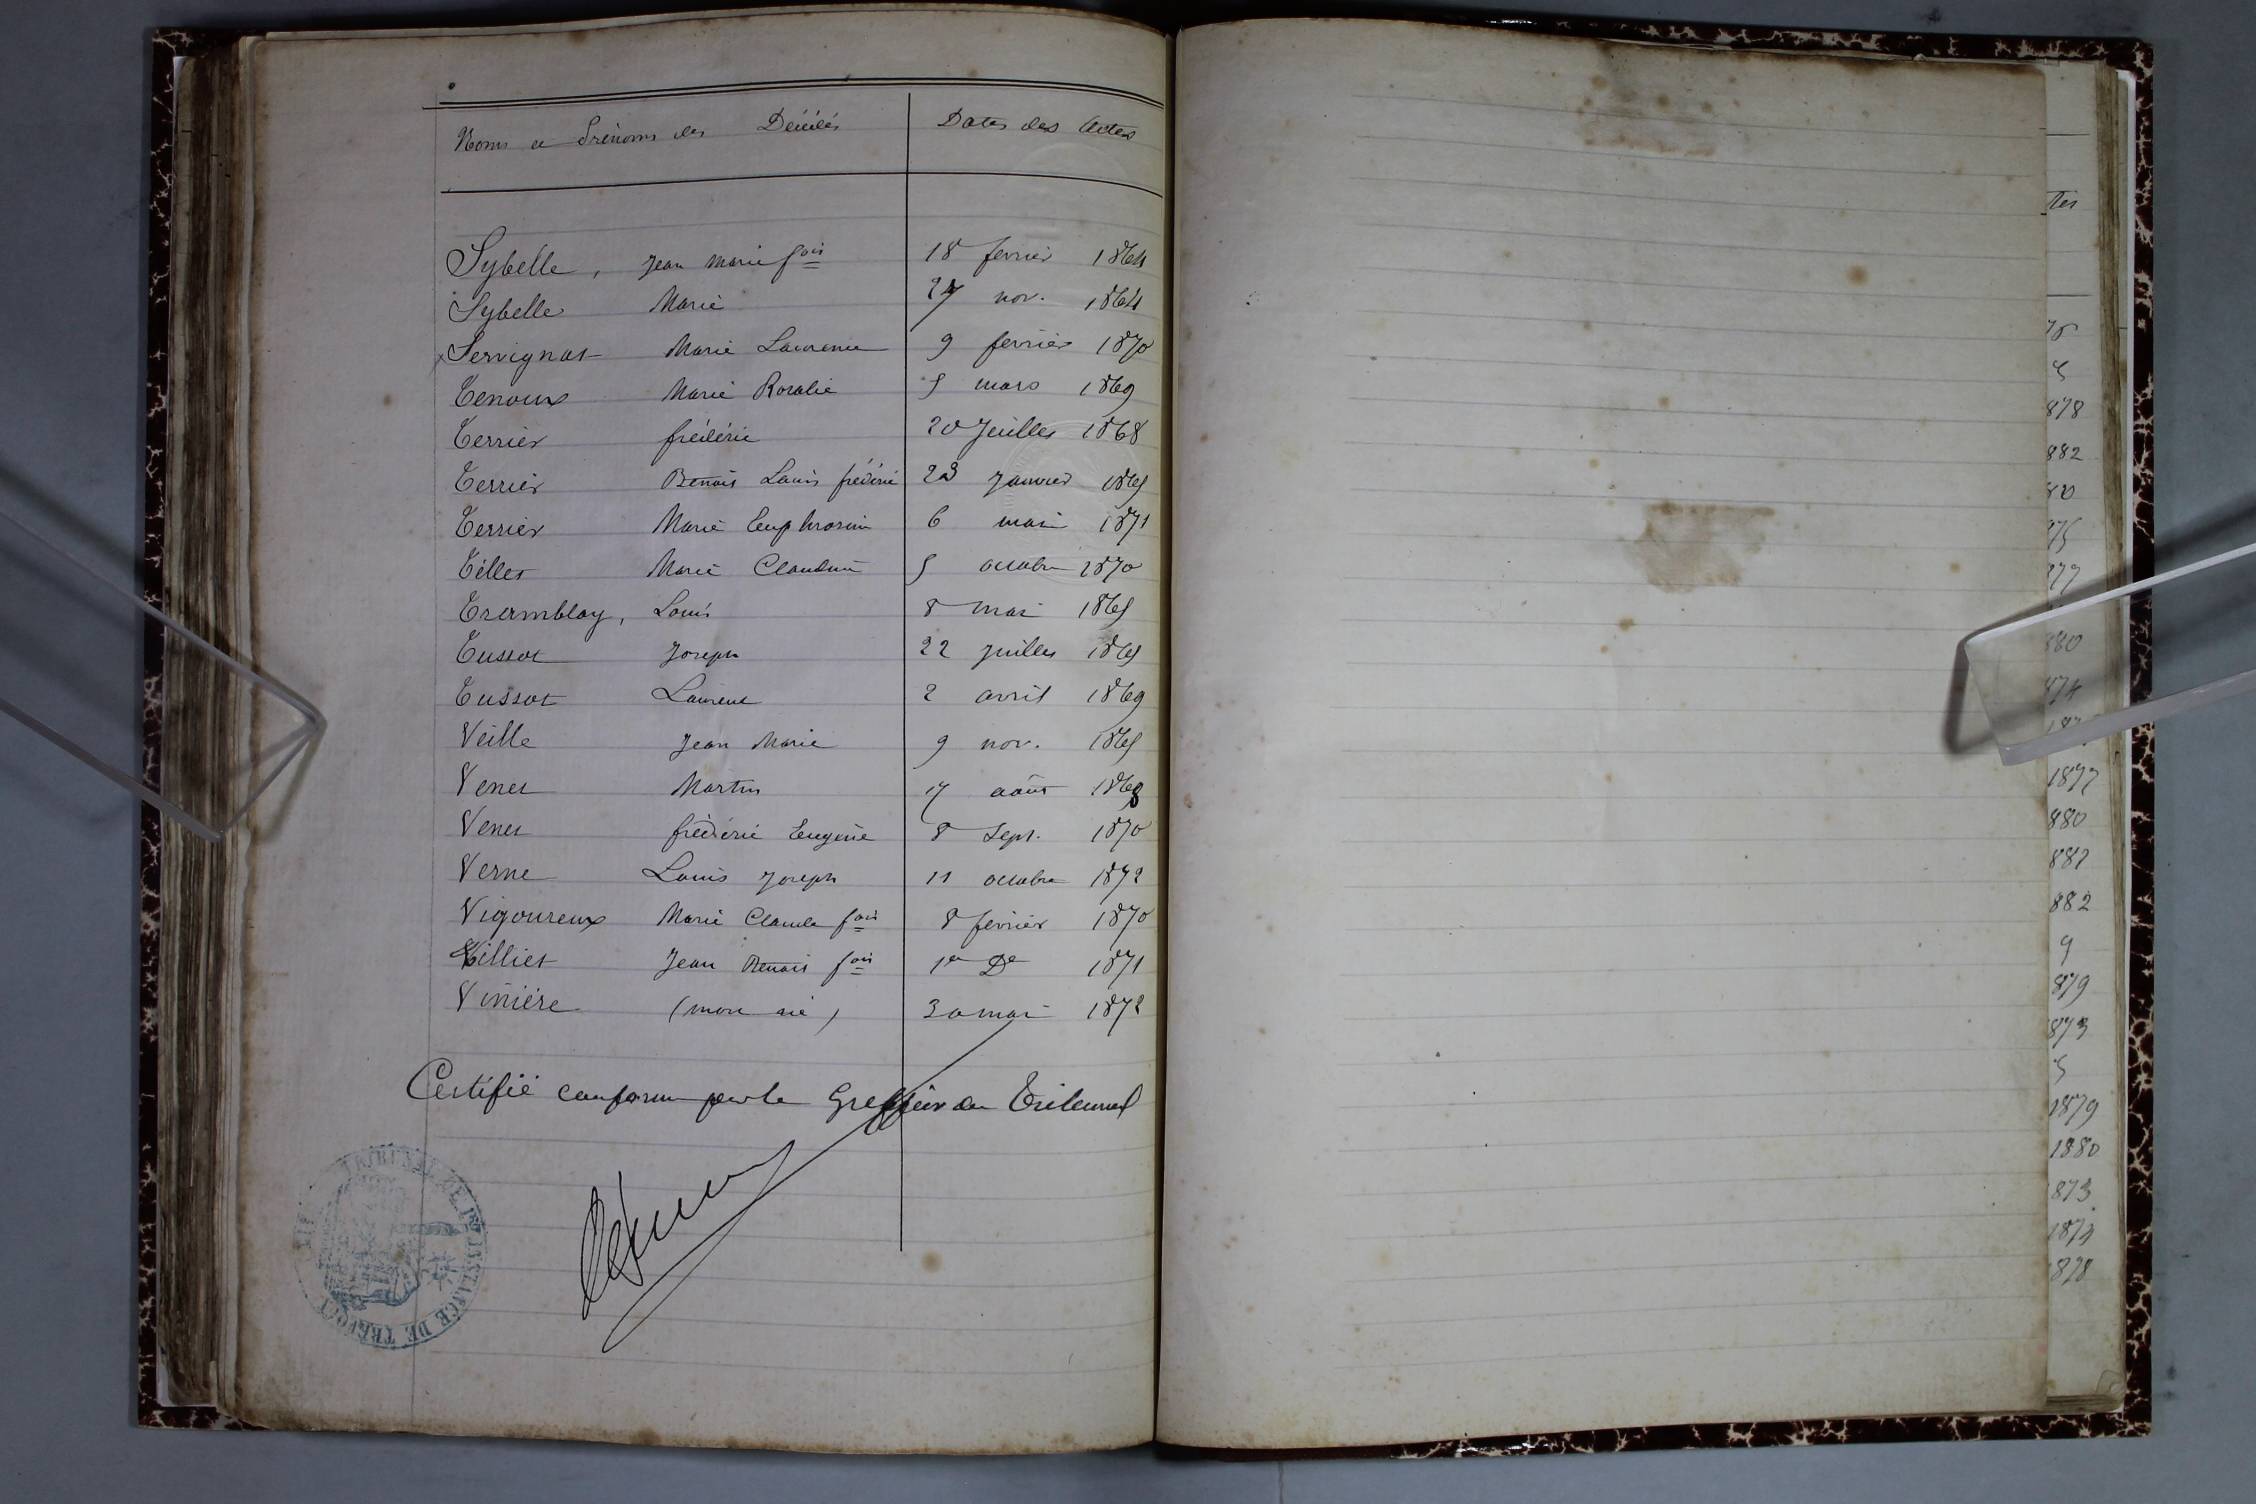 Noms et Prénoms des Décédés Dates des Actes
Sybelle, Jean Marie fois 18 fevrier 1864
Sybelle Marie 27 nov. 1864
Servignat Marie Laurence 9 fevrier 1870
Tenoux Marie Rosalie 5 mars 1869
Terrier frédéric 20 Juillet 1868
Terrier Benoit Louis frédéric 23 Janvier 1865
Terrier Marie Euphrosine 6 mai 1871
Tillet Marie Claudine 5 octobre 1870
Tramblay, Louis 8 mai 1865
Tussot Joseph 22 Juillet 1865
Tussot Laurent 2 avril 1869
Veille Jean Marie 9 nov. 1865
Venet Martin 17 août 1868
Venet frédéric Eugène 8 Sept. 1870
Verne Louis Joseph 11 octobre 1872
Vigoureux Marie Claude fois 8 fevrier 1870
Villiet Jean Benoit fois 1er De 1871
Vinière (mort né) 30 mai 1872
Certifié conforme par le Greffier du Tribunal
TRIBUNAL DE 1re INSTANCE DE TREVOUX
tes
878
882
77
880
74
1877
880
882
9
879
873
1879
1880
873
1873
878